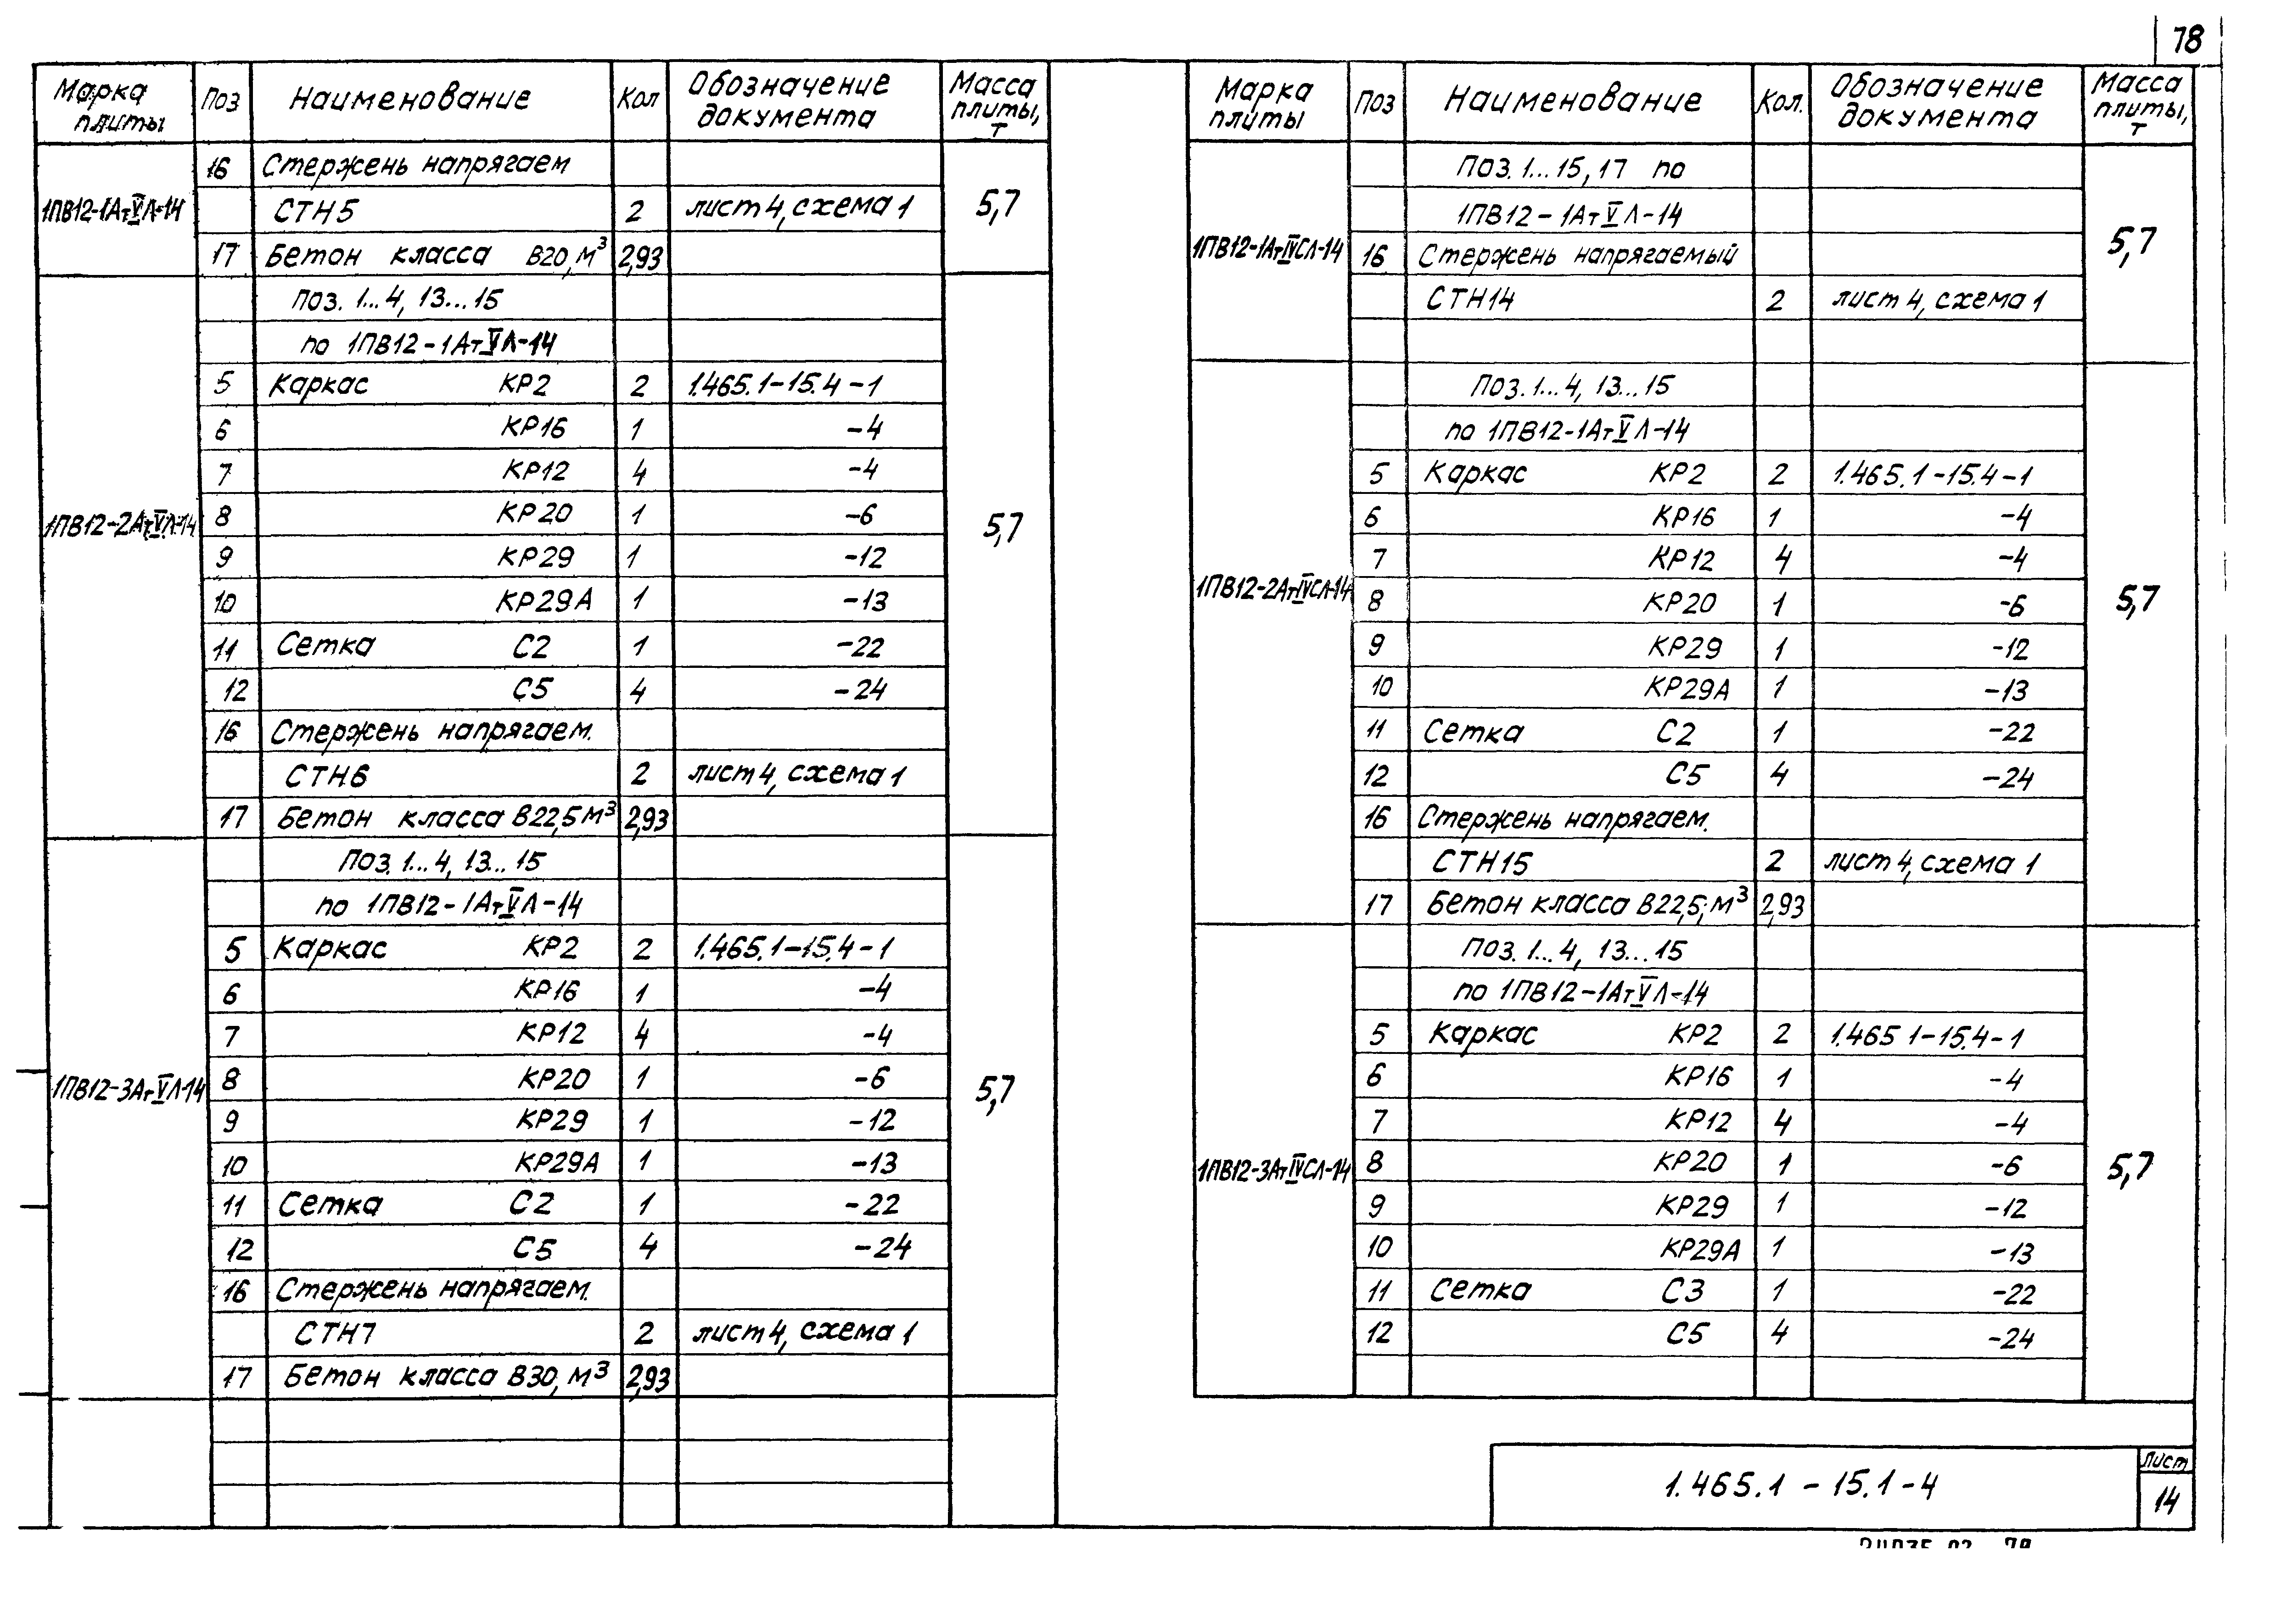 78
Марка плиты Поз Наименование Кол Обозначение документа Масса плиты, т
1ПВ12-1АтVЛ-14 16 Стержень напрягаем 5,7
СТН5 2 лист 4, схема 1
17 Бетон класса В20, м³ 2,93
1ПВ12-2АтVЛ-14 Поз. 1...4, 13...15 5,7
по 1ПВ12-1АтVЛ-14
5 Каркас КР2 2 1.465.1-15.4-1
6 КР16 1 -4
7 КР12 4 -4
8 КР20 1 -6
9 КР29 1 -12
10 КР29А 1 -13
11 Сетка С2 1 -22
12 С5 4 -24
16 Стержень напрягаем.
СТН6 2 лист 4, схема 1
17 Бетон класса В22,5 м³ 2,93
1ПВ12-3АтVЛ-14 Поз. 1...4, 13...15 5,7
по 1ПВ12-1АтVЛ-14
5 Каркас КР2 2 1.465.1-15.4-1
6 КР16 1 -4
7 КР12 4 -4
8 КР20 1 -6
9 КР29 1 -12
10 КР29А 1 -13
11 Сетка С2 1 -22
12 С5 4 -24
16 Стержень напрягаем.
СТН7 2 лист 4, схема 1
17 Бетон класса В30, м³ 2,93
Марка плиты Поз Наименование Кол. Обозначение документа Масса плиты, т
1ПВ12-1АтIVСЛ-14 Поз. 1...15, 17 по 5,7
1ПВ12-1АтVЛ-14
16 Стержень напрягаемый
СТН14 2 лист 4, схема 1
1ПВ12-2АтIVСЛ-14 Поз. 1...4, 13...15 5,7
по 1ПВ12-1АтVЛ-14
5 Каркас КР2 2 1.465.1-15.4-1
6 КР16 1 -4
7 КР12 4 -4
8 КР20 1 -6
9 КР29 1 -12
10 КР29А 1 -13
11 Сетка С2 1 -22
12 С5 4 -24
16 Стержень напрягаем.
СТН15 2 лист 4, схема 1
17 Бетон класса В22,5, м³ 2,93
1ПВ12-3АтIVСЛ-14 Поз. 1...4, 13...15 5,7
по 1ПВ12-1АтVЛ-14
5 Каркас КР2 2 1.465 1-15.4-1
6 КР16 1 -4
7 КР12 4 -4
8 КР20 1 -6
9 КР29 1 -12
10 КР29А 1 -13
11 Сетка С3 1 -22
12 С5 4 -24
1.465.1-15.1-4
лист
14